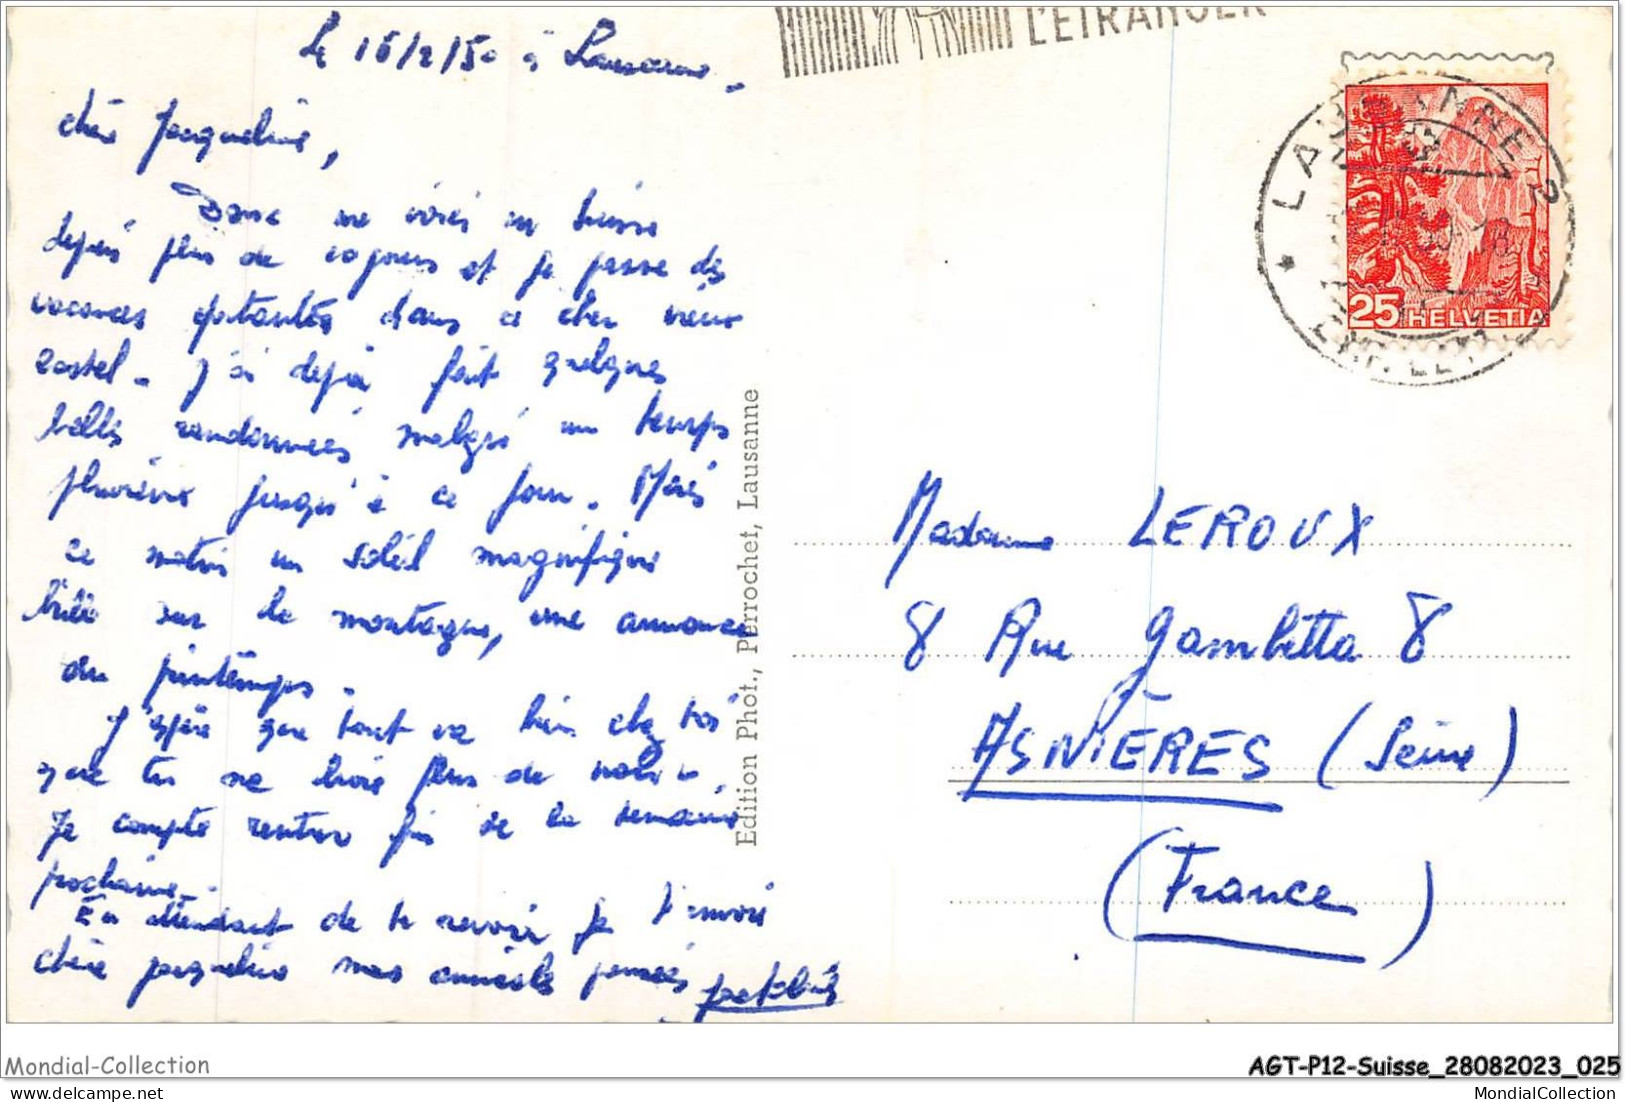 L'ETRANGER
Le 16/2/50 à Lausanne
LAUSANNE 2
EXP. LETTR.
25 HELVETIA
chère Jacqueline,
Donc me voici en Suisse
depuis plus de jours et je passe des
vacances épatantes dans ce cher vieux
castel - J'ai déjà fait quelques
belles randonnées malgré un temps
pluvieux jusqu'à ce jour. Mais
ce matin un soleil magnifique
brille sur la montagne, une annonce
du printemps -
J'espère que tout va bien chez toi
que tu ne broie plus de noir.
Je compte rentrer fin de la semaine
prochaine -
En attendant de te revoir je t'envoie
chère Jacqueline mes amicales pensées
Edition Phot., Perrochet, Lausanne
Madame LEROUX
8 Rue Gambetta 8
ASNIÈRES (Seine)
(France)
Mondial-Collection
AGT-P12-Suisse_28082023_025
MondialCollection